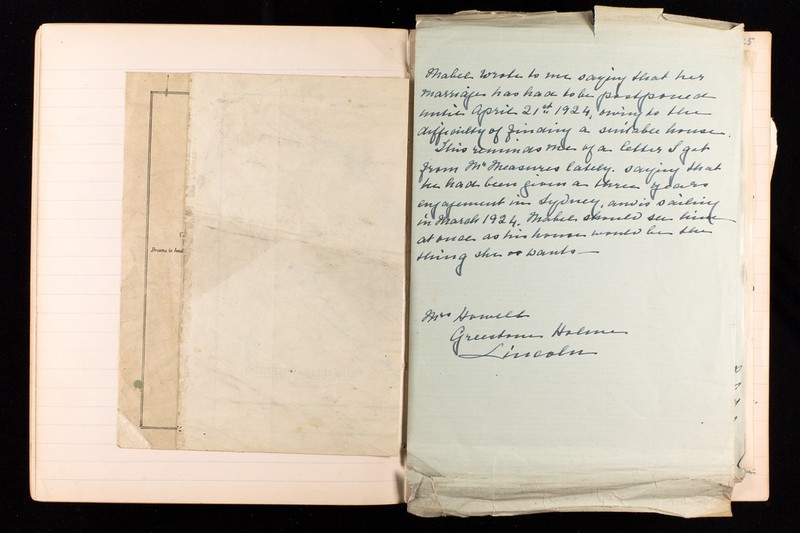 Drawn & Lead
Mabel wrote to me saying that her
marriage has had to be postponed
until April 21st 1924, owing to the
difficulty of finding a suitable house.
This reminds me of a letter I got
from Mr Measures lately. saying that
he had been given a three years
engagement in Sydney, and is sailing
in March 1924. Mabel should see him
at once as his house would be the
thing she wants—
Mrs Howell
Greestone Holme
Lincoln